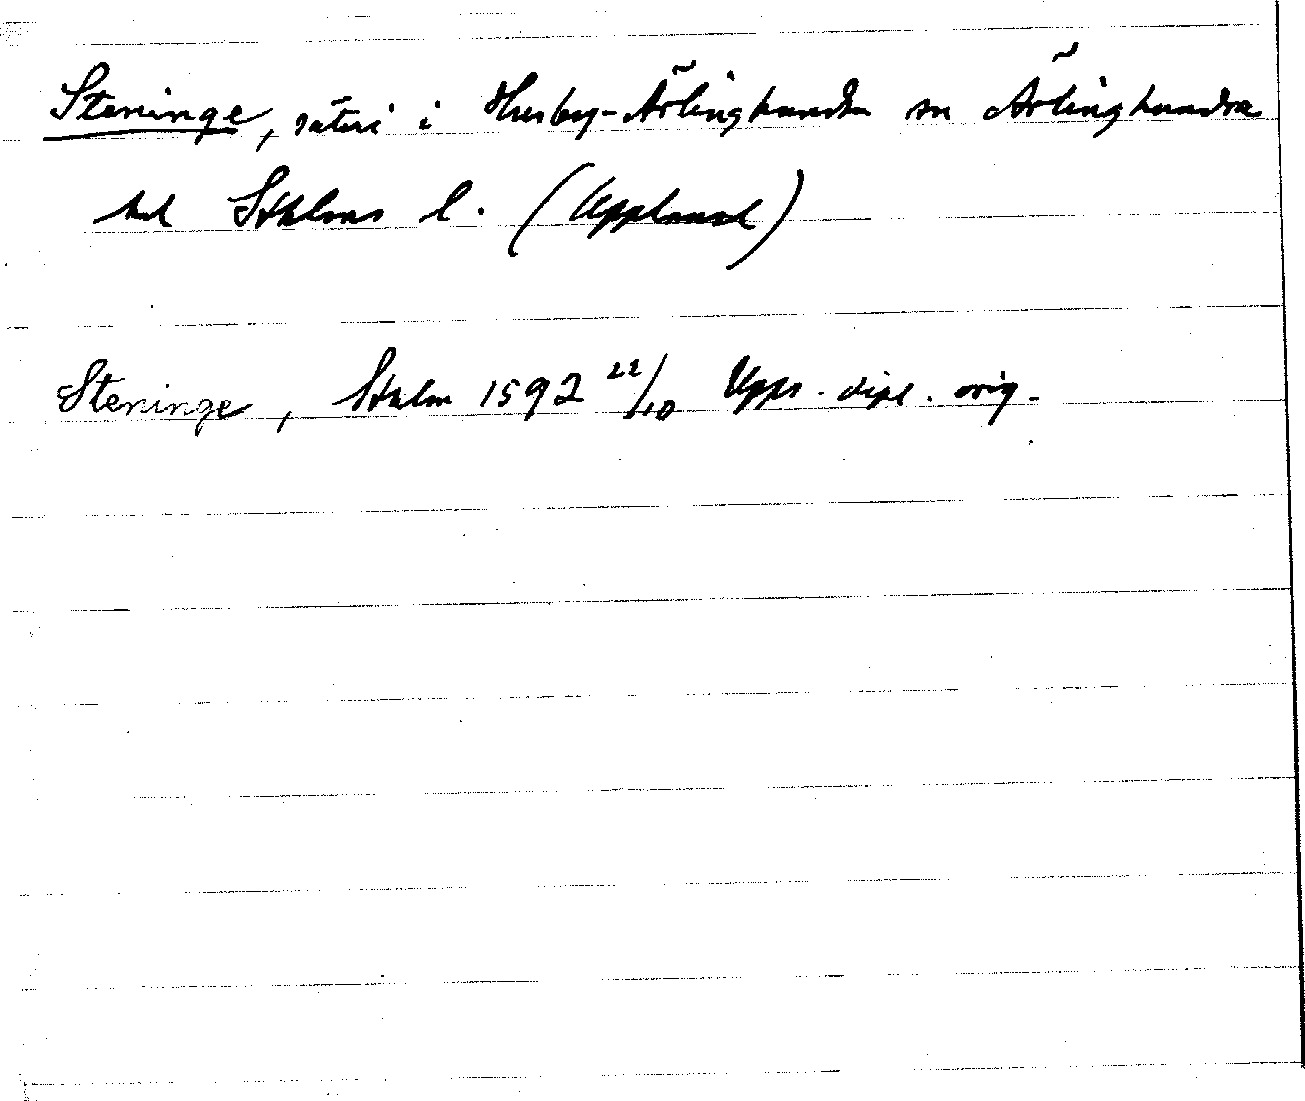 Steninge, säteri i Husby-Ärlinghundra sn Ärlinghundra
hd Sthlms l. (Uppland)
Steninge, Sthlm 1592 22/10 Upps. dipl. orig.